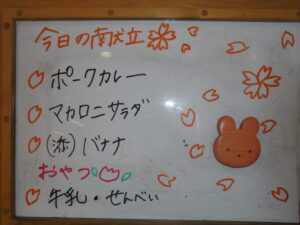 今日の献立
ポークカレー
マカロニサラダ
(添)バナナ
おやつ
牛乳・せんべい